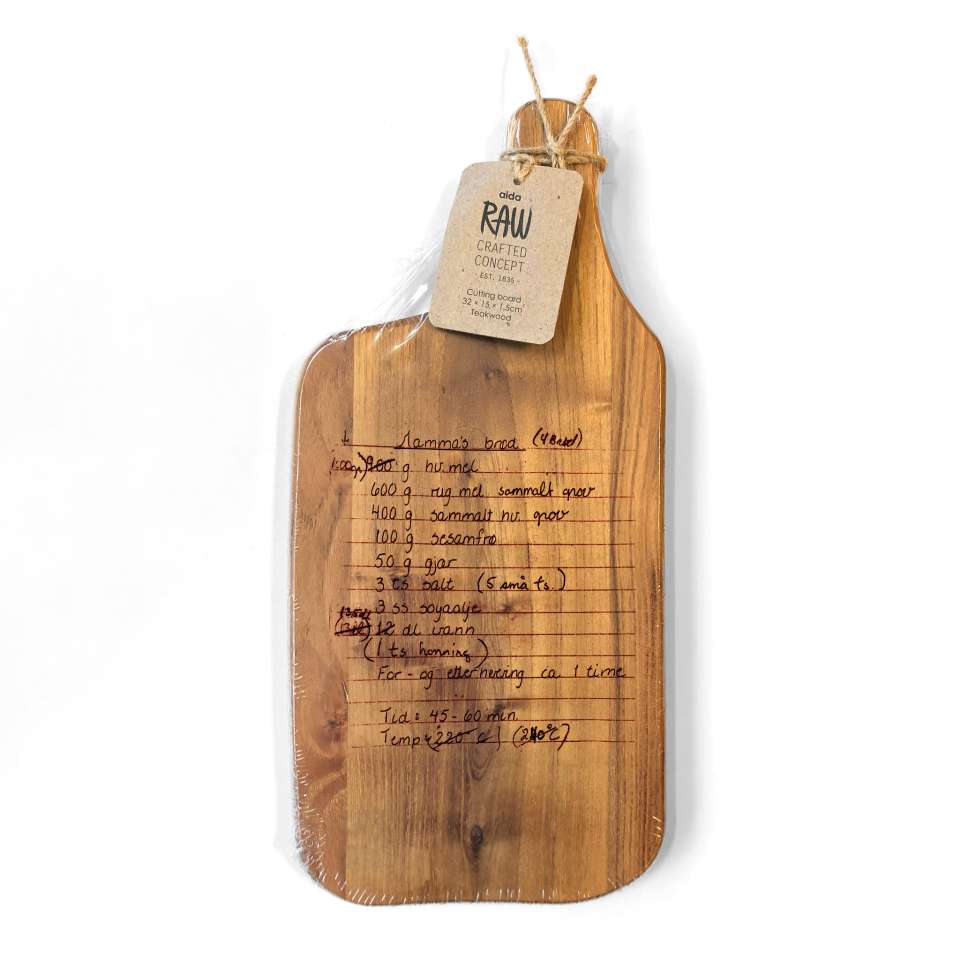 aida
RAW
CRAFTED
CONCEPT
- EST. 1835 -
Cutting board
32 × 15 × 1.5cm
Teakwood
Mamma's brød (4 Brød)
900 g hv. mel
600 g rug mel sammalt grov
400 g sammalt hv. grov
100 g sesamfrø
50 g gjær
3 ts salt (5 små ts.)
3 ss soyaolje
12 dl vann
(1 ts honning)
For- og etterheving ca. 1 time
Tid: 45-60 min.
Temp: 220° C (240°C)